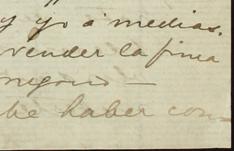 y yo á medias.
vender la finca
negocio —
be haber con-